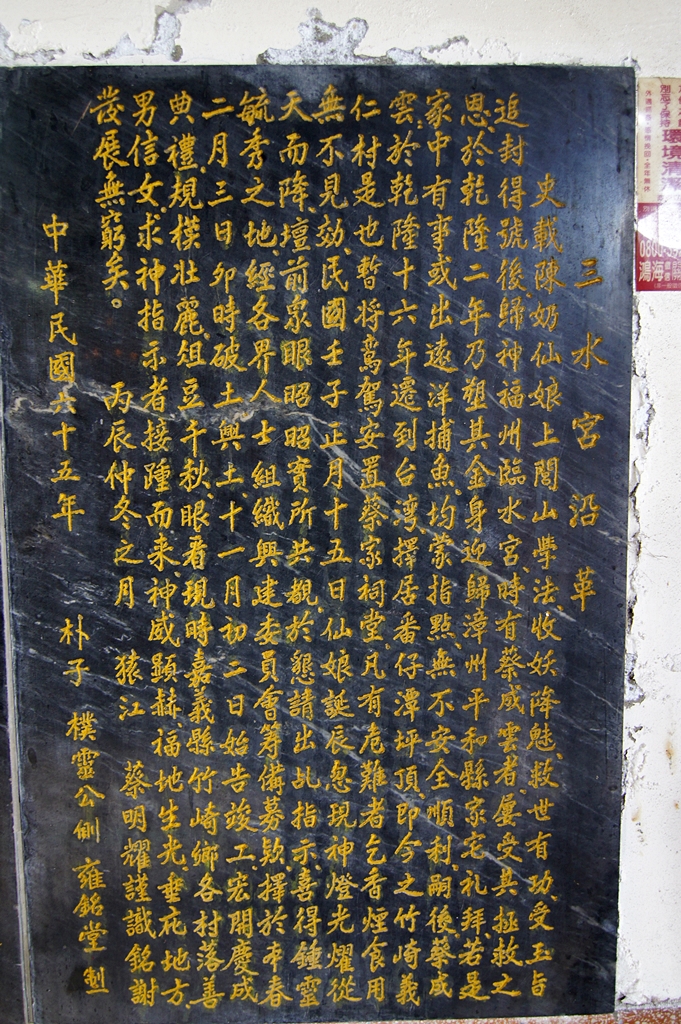 三水宮沿革
史載陳奶仙娘上閭山學法、收妖降魅、救世有功、受玉旨
追封得號後、歸神福州臨水宮、時有蔡成雲者、屢受其拯救之
恩、於乾隆二年乃塑其金身迎歸漳州平和縣家宅礼拜、若是
家中有事或出遠洋捕魚、均蒙指點、無不安全順利、嗣後蔡成
雲、於乾隆十六年遷到台灣擇居番仔潭坪頂、即今之竹崎義
仁村是也暫將鸞駕安置蔡家祠堂、凡有危難者乞香煙食用
無不見効、民國壬子正月十五日仙娘誕辰忽現神燈光燿從
天而降、壇前泉眼昭昭實所共覩、於懇請出乩指示、喜得鍾靈
毓秀之地、經各界人士組織興建委員會籌備募欵、擇於本春
二月三日卯時破土興土、十一月初二日始告竣工、宏開慶成
典禮、規模壯麗、俎豆千秋、眼看現時嘉義縣竹崎鄉各村落善
男信女、求神指示者接踵而来、神威顯赫、福地生光、垂庇地方、
發展無窮矣。
丙辰仲冬之月 猿江 蔡明燿謹識銘謝
中華民國六十五年 朴子 樸靈公側 雍銘堂 製
環境清
0800
鴻海